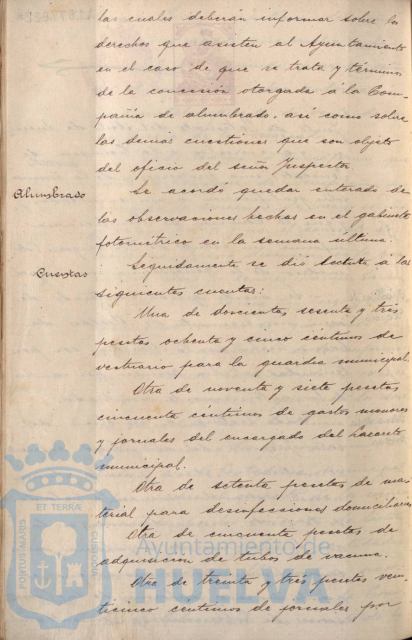 las cuales deberán informar sobre los
derechos que asisten al Ayuntamiento
en el caso de que se trata y términos
de la concesión otorgada á la Com-
pañia de alumbrado, así como sobre
las demás cuestiones que son objeto
del oficio del señor Inspector.
Alumbrado
Se acordó quedar enterado de
las observaciones hechas en el gabinete
fotométrico en la semana última.
Cuentas
Seguidamente se dió lectura á las
siguientes cuentas:
Una de doscientas sesenta y tres
pesetas ochenta y cinco céntimos de
vestuario para la guardia municipal.
Otra de noventa y siete pesetas
cincuenta céntimos de gastos menores
y jornales del encargado del
municipal.
Otra de setenta pesetas de ma-
terial para desinfecciones domiciliarias
Otra de cincuenta pesetas de
adquisición de tubos de vacuna.
Otra de treinta y tres pesetas vein-
ticinco céntimos de jornales por
Ayuntamiento de
HUELVA
ET TERRÆ
PORTUS MARIS
CUSTODIA